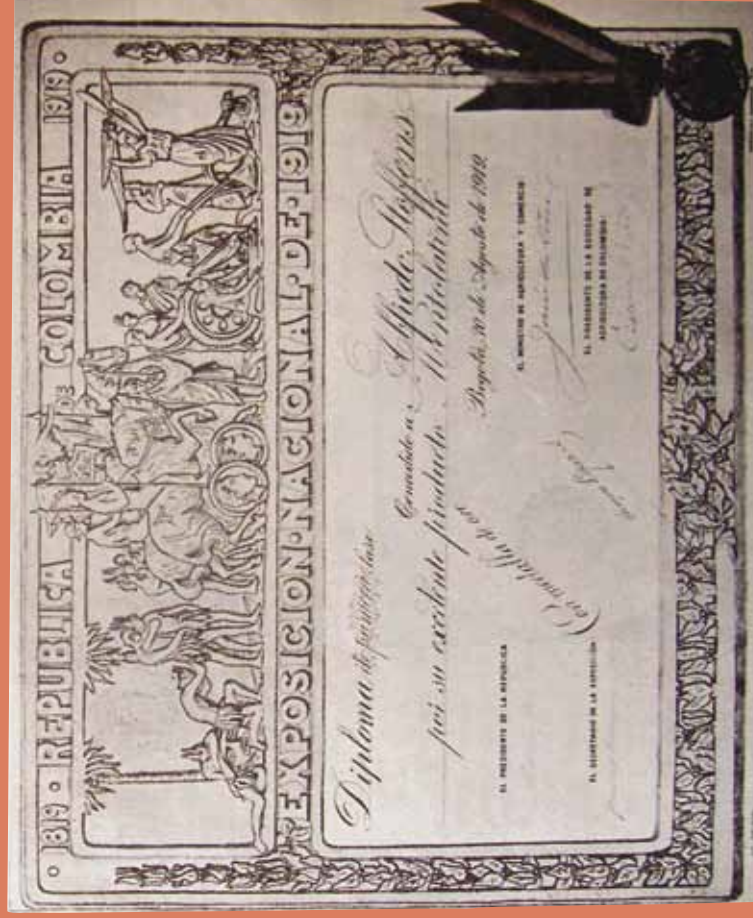 1819 REPUBLICA DE COLOMBIA 1919
EXPOSICION·NACIONAL·DE·1919
Diploma de primera clase
Concedido a Alfredo Steffens
por su excelente producto Mentolatinte
(con medalla de oro)
Bogotá, 20 de Agosto de 1919.
EL PRESIDENTE DE LA REPUBLICA
EL MINISTRO DE AGRICULTURA Y COMERCIO:
EL SECRETARIO DE LA EXPOSICIÓN
EL PRESIDENTE DE LA SOCIEDAD DE
AGRICULTURA DE COLOMBIA: